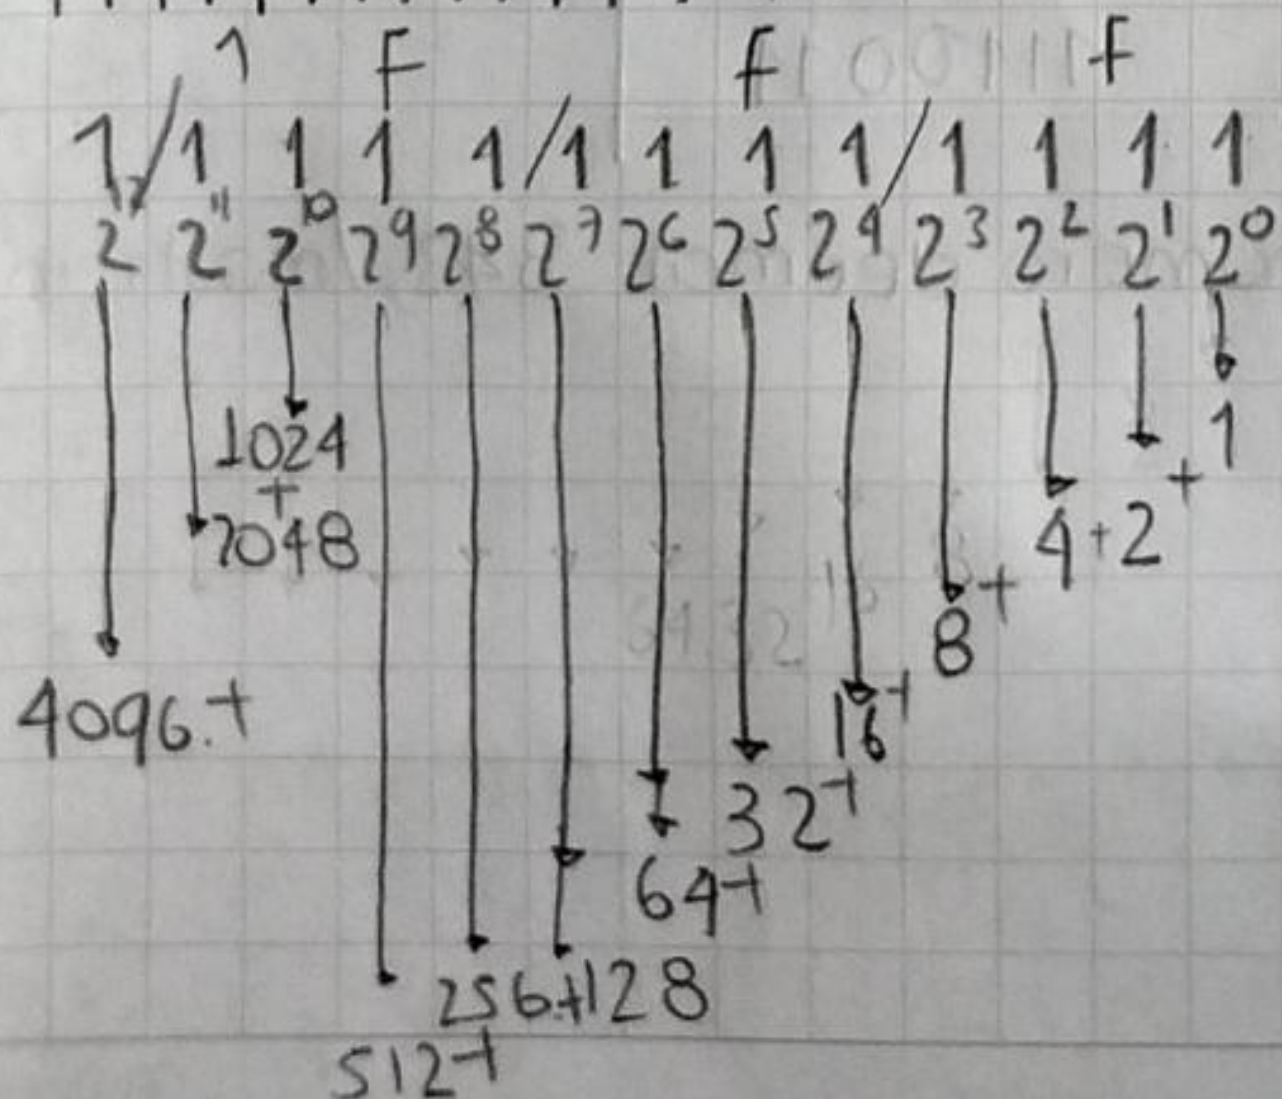 1 F F F
1/1 1 1 1/1 1 1 1/1 1 1 1
2¹² 2¹¹ 2¹⁰ 2⁹ 2⁸ 2⁷ 2⁶ 2⁵ 2⁴ 2³ 2² 2¹ 2⁰
1024 1
+ +
2048 4+2
8+
4096.+ 16+
32+
64+
256+128
512+